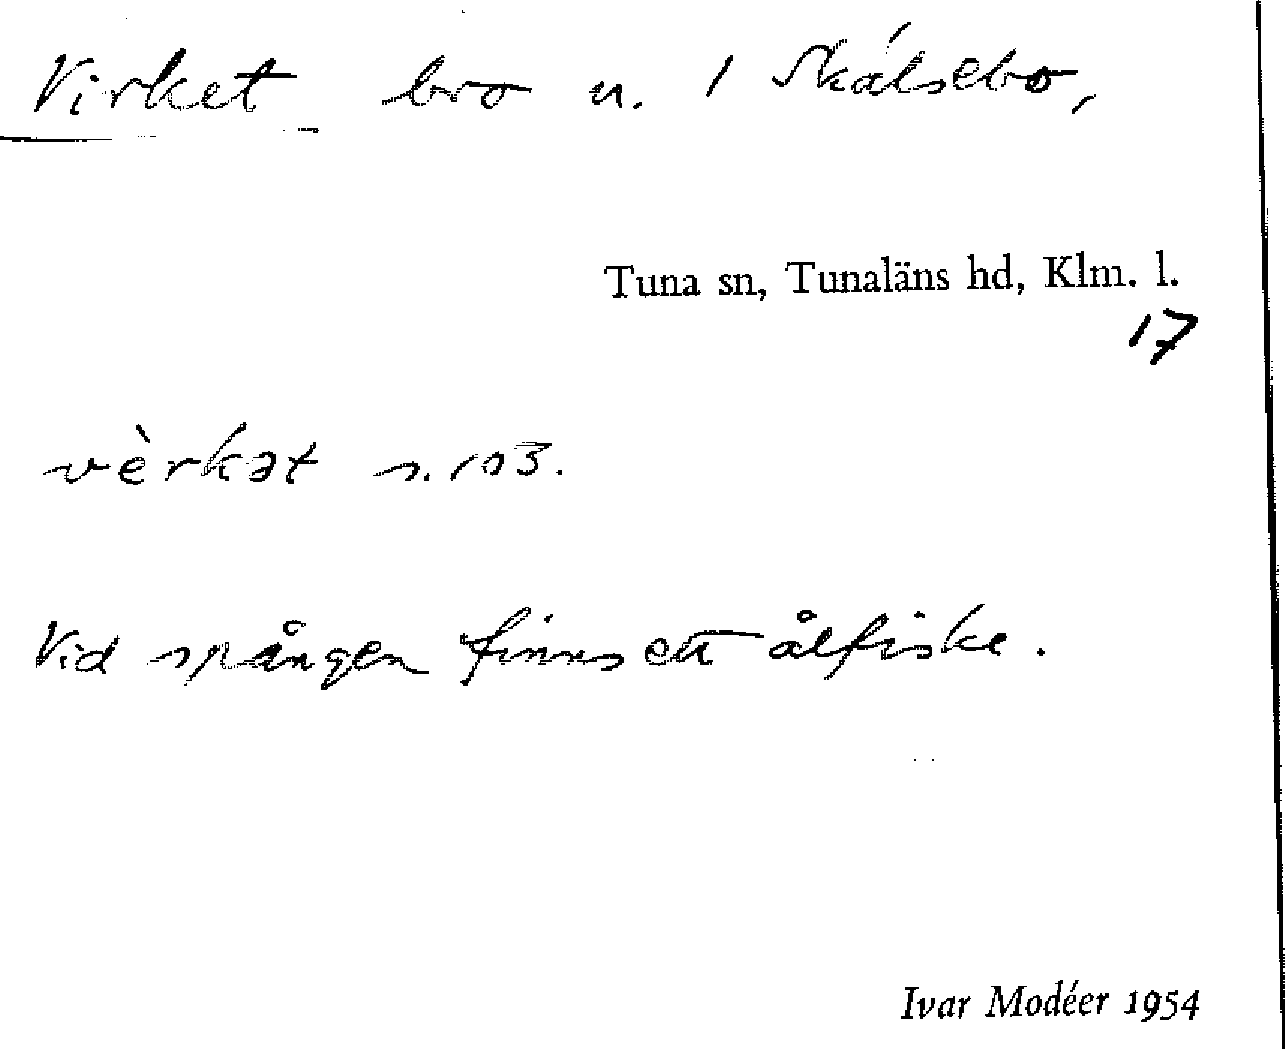 Virket bro u. 1 Skálsebo,
Tuna sn, Tunaläns hd, Klm. l.
17
vèrkət s. 103.
Vid spången finns ett ålfiske.
Ivar Modéer 1954